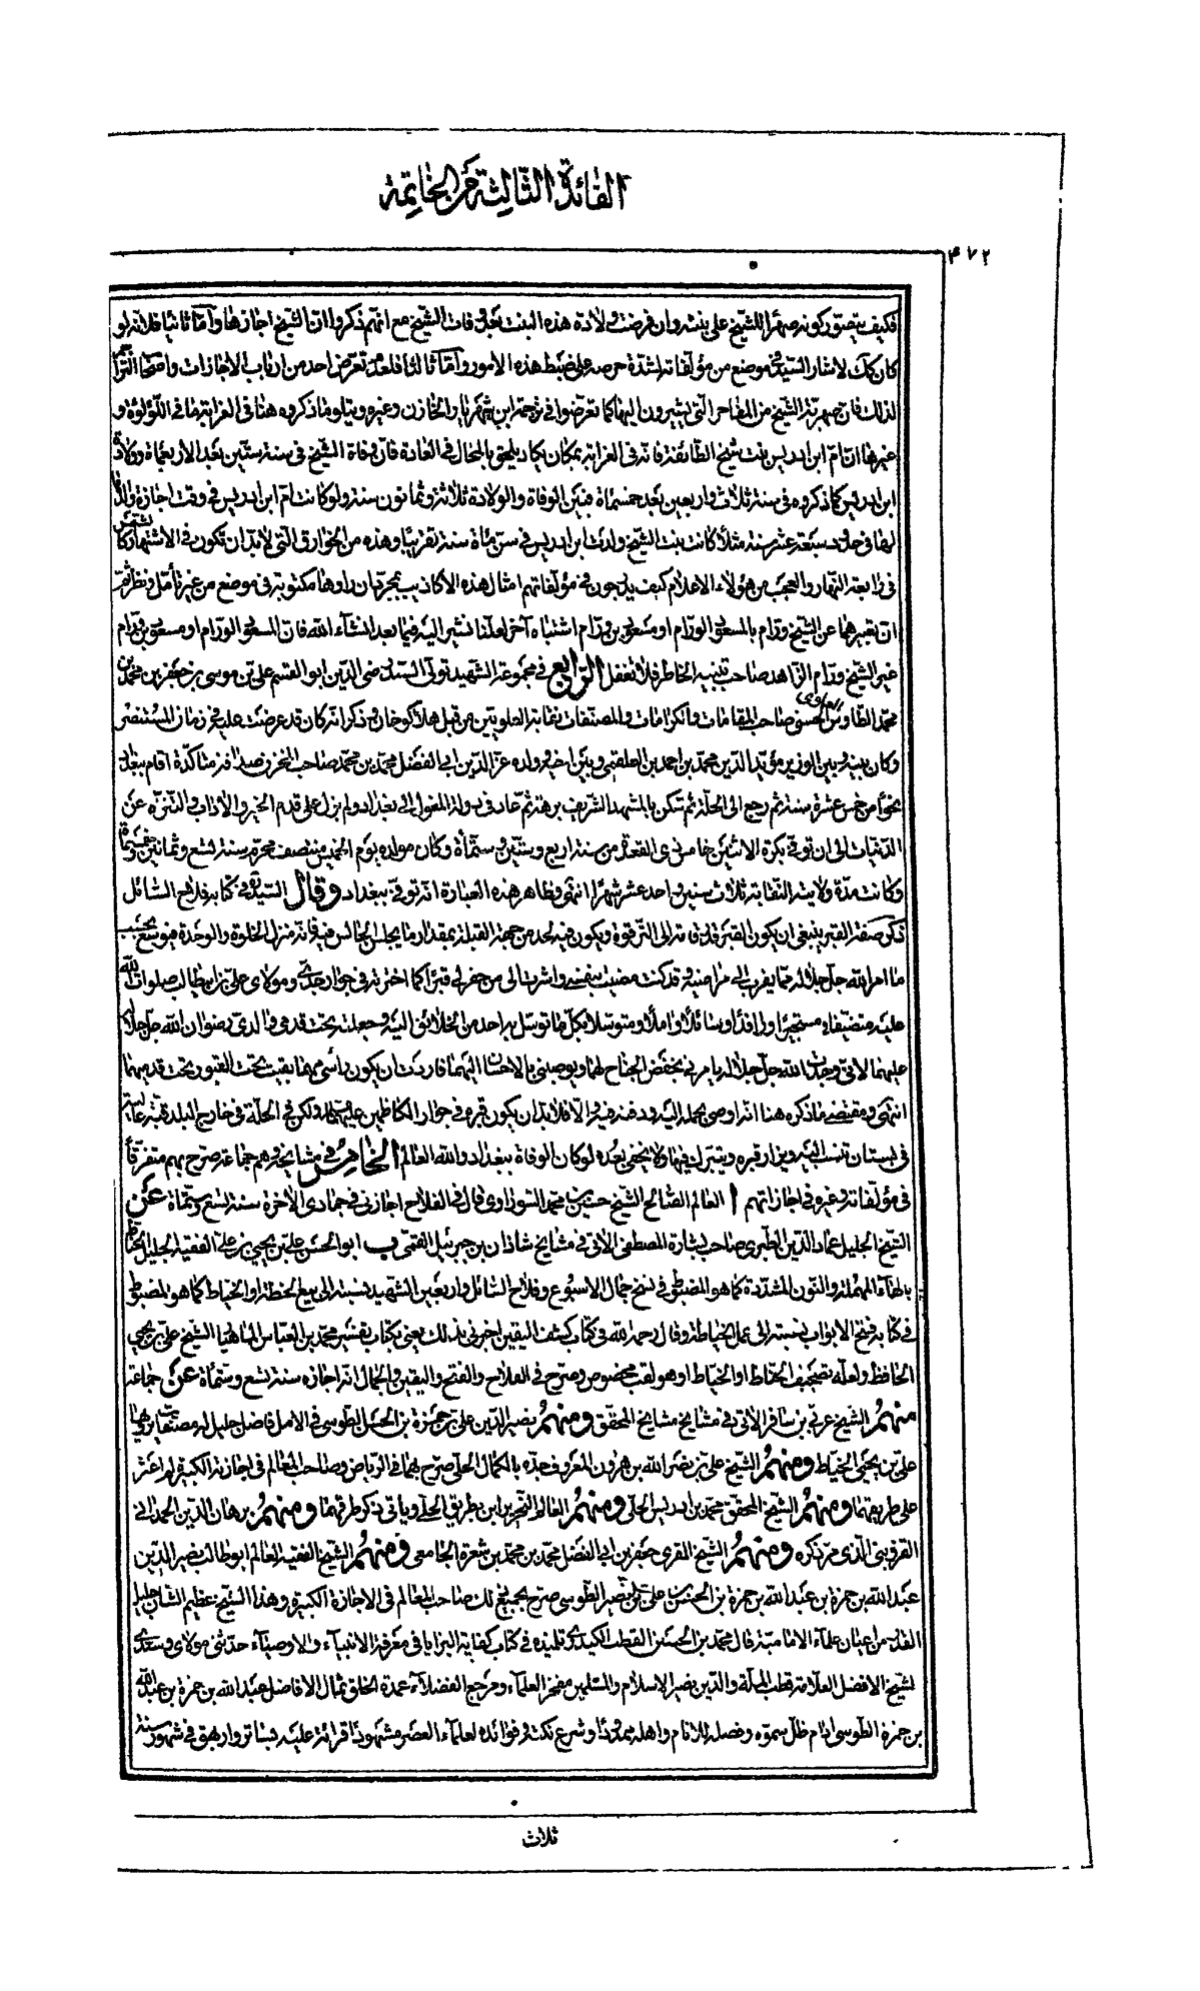 الفائدة الثالثة من الخاتمة
۴۷۲
فكيف يتصور كونه صهرا للشيخ على بنته وان فرضت ولادة هذه البنت بعد وفات الشيخ مع انهم ذكروا ان الشيخ اجازها وأما ثانيا فلانه لو
كان كك لاشار السيد في موضع من مؤلفاته لشدة حرصه على ضبط هذه الامور وأما ثالثا فلعدم تعرض احد من ارباب الاجازات واصحاب التراجم
لذلك فان صهرية الشيخ من المفاخر التي يشيرون اليها كما تعرضوا في ترجمة ابن شهريار الخازن وغيره ويتلو ما ذكروه هنا في الغرابة ما في اللؤلؤة و
غيرها ان ام ابن ادريس بنت شيخ الطائفة فانه في الغرابة بمكان يكاد يلحق بالمحال في العادة فان وفاة الشيخ في سنة ستين بعد الاربعمأة وولادة
ابن ادريس كما ذكروه في سنة ثلاث واربعين بعد خمسمأة فبين الوفاة والولادة ثلاثة وثمانون سنة ولو كانت ام ابن ادريس في وقت اجازة والدها
لها في حدود سبعة عشر سنة مثلا كانت بنت الشيخ ولدت ابن ادريس في سن مأة سنة تقريبا وهذه من الخوارق التي لا بد ان تكون في الاشتهار كالشمس
في رابعة النهار والعجب من هؤلاء الاعلام كيف يدرجون في مؤلفاتهم امثال هذه الاكاذيب بمجرد ان رأوها مكتوبة في موضع من غير تأمل ونظر ثم
ان تعبيرهما عن الشيخ ورام بالمسعود الورام او مسعود بن ورام اشتباه آخر لعلنا نشير اليه فيما بعد انشاء الله فان المسعود الورام او مسعود بن ورام
غير الشيخ ورام الزاهد صاحب تنبيه الخاطر فلا تغفل الرابع في مجموعة الشهيد تولى السيد رضي الدين ابو القسم علي بن موسى بن جعفر بن محمد بن
محمد الطاوس العلوي الحسني صاحب المقامات والكرامات والمصنفات نقابة العلويين من قبل هلاكو خان وذكر انه كان قد عرضت عليه في زمان المستنصر
وكان بينه وبين الوزير مؤيد الدين محمد بن احمد بن العلقمي وبين اخيه وولده عز الدين ابي الفضل محمد بن محمد صاحب المخزن صداقة متأكدة اقام ببغداد
نحوا من خمس عشرة سنة ثم رجع الى الحلة ثم سكن بالمشهد الشريف برهة ثم عاد في دولة المغول الى بغداد ولم يزل على قدم الخير والاداب والتنزه عن
الدنيات الى ان توفي بكرة الاثنين خامس ذي القعدة من سنة اربع وستين وستمأة وكان مولده يوم الخميس منتصف محرم سنة تسع وثمانين وخمسمأة
وكانت مدة ولايته النقابة ثلاث سنين واحد عشر شهرا انتهى وظاهر هذه العبارة انه توفي ببغداد وقال السيد في كتابه فلاح السائل
ذكر صفة القبر ينبغي ان يكون القبر قدر قامة الى الترقوة ويكون فيه لحد من جهة القبلة بمقدار ما يجلس الجالس فيه فانه منزل الخلوة والوحدة فيوسع بحسب
ما امر الله جل جلاله مما يقرب الى مراضيه وقد كنت مضيت بنفسي واشرت الى من حفر لي قبرا كما اخترته في جوار جدي ومولاي علي بن ابيطالب صلوات الله
عليه متضيفا ومستجيرا ورافدا وسائلا واملا ومتوسلا بكل ما توسل به احد من الخلائق اليه وجعلته تحت قدمي والدي رضوان الله جل جلاله
عليهما لاني وجدت الله جل جلاله يامرني بخفض الجناح لهما ويوصيني بالاحسان اليهما فاردت ان يكون رأسي مهما بقيت تحت القبور تحت قدميهما
انتهى ومقتضى ما ذكره هنا انه اوصى بحمله اليه ودفنه فيه والا فلا بد ان يكون قبره في جوار الكاظمين عليهما السلام ولكن في الحلة في خارج البلد قبة عالية
في بستان تنسب اليه ويزار قبره ويتبرك فيها ولا يخفى بعده لو كان الوفاة ببغداد والله العالم الخامس في مشايخه وهم جماعة صرح بهم متفرقا
في مؤلفاته وغيره في اجازاتهم ا العالم الصالح الشيخ حسين بن محمد السوراوي قال في الفلاح اجازني في جمادي الاخرة سنة تسع وستمأة عن
الشيخ الجليل عماد الدين الطبري صاحب بشارة المصطفى الاتي في مشايخ شاذان بن جبرئيل القمي ب ابو الحسن علي بن يحيى بن علي الفقيه الجليل الحناط
بالحاء المهملة والنون المشددة كما هو المضبوط في نسخ جمال الاسبوع وفلاح السائل واربعين الشهيد نسبة الى بيع الحنطة او الخياط كما هو المضبوط
في كتابه فتح الابواب نسبة الى عمل الخياطة وقال رحمه الله في كتاب كشف اليقين اخبرني بذلك يعني بكتاب تفسير محمد بن العباس الماهيار الشيخ علي بن يحيى
الحافظ ولعله تصحيف الحناط او الخياط او هو لقب مخصوص وصرح في الفلاح والفتح واليقين والجمال انه اجازه سنة تسع وستمأة عن جماعة
منهم الشيخ عربي بن مسافر الاتي في مشايخ مشايخ المحقق ومنهم نصير الدين علي بن حمزة بن الحسن الطوسي في الامل فاضل جليل له مصنفات يرويها
علي بن يحيى الخياط ومنهم الشيخ علي بن نصر الله بن هرون المعروف جده بالكمال الحلي صرح بهما في الرياض وصاحب المعالم في اجازته الكبيرة لم اعثر
على طريقهما ومنهم الشيخ المحقق محمد بن ادريس الحلي ومنهم العالم النحرير ابن بطريق الحلي ويأتي ذكر طرقهما ومنهم برهان الدين الحمداني
القزويني الذي مر ذكره ومنهم الشيخ المقري جعفر بن ابي الفضل محمد بن محمد بن شعرة الجامعي ومنهم الشيخ الفقيه العالم ابو طالب نصير الدين
عبد الله بن حمزة بن عبد الله بن حمزة بن الحسن بن علي بن نصير الطوسي صرح بجميع ذلك صاحب المعالم في الاجازة الكبيرة وهذا الشيخ عظيم الشان جليل
القدر من اعيان علماء الامامية قال محمد بن الحسين القطب الكيدري تلميذه في كتاب كفاية البرايا في معرفة الانبياء والاوصياء حدثني مولاي وسيدي
الشيخ الافضل العلامة قطب الملة والدين نصير الاسلام والمسلمين مفخر العلماء ومرجع الفضلاء عمدة الخلق ثمال الافاضل عبد الله بن حمزة بن عبد الله
بن حمزة الطوسي ادام ظل سموه وفضله للانام واهله ممدودا وشرع نكته وفوائده لعلماء العصر مشهودا قرائة عليه بسابزوار بيهق في شهور سنة
ثلاث